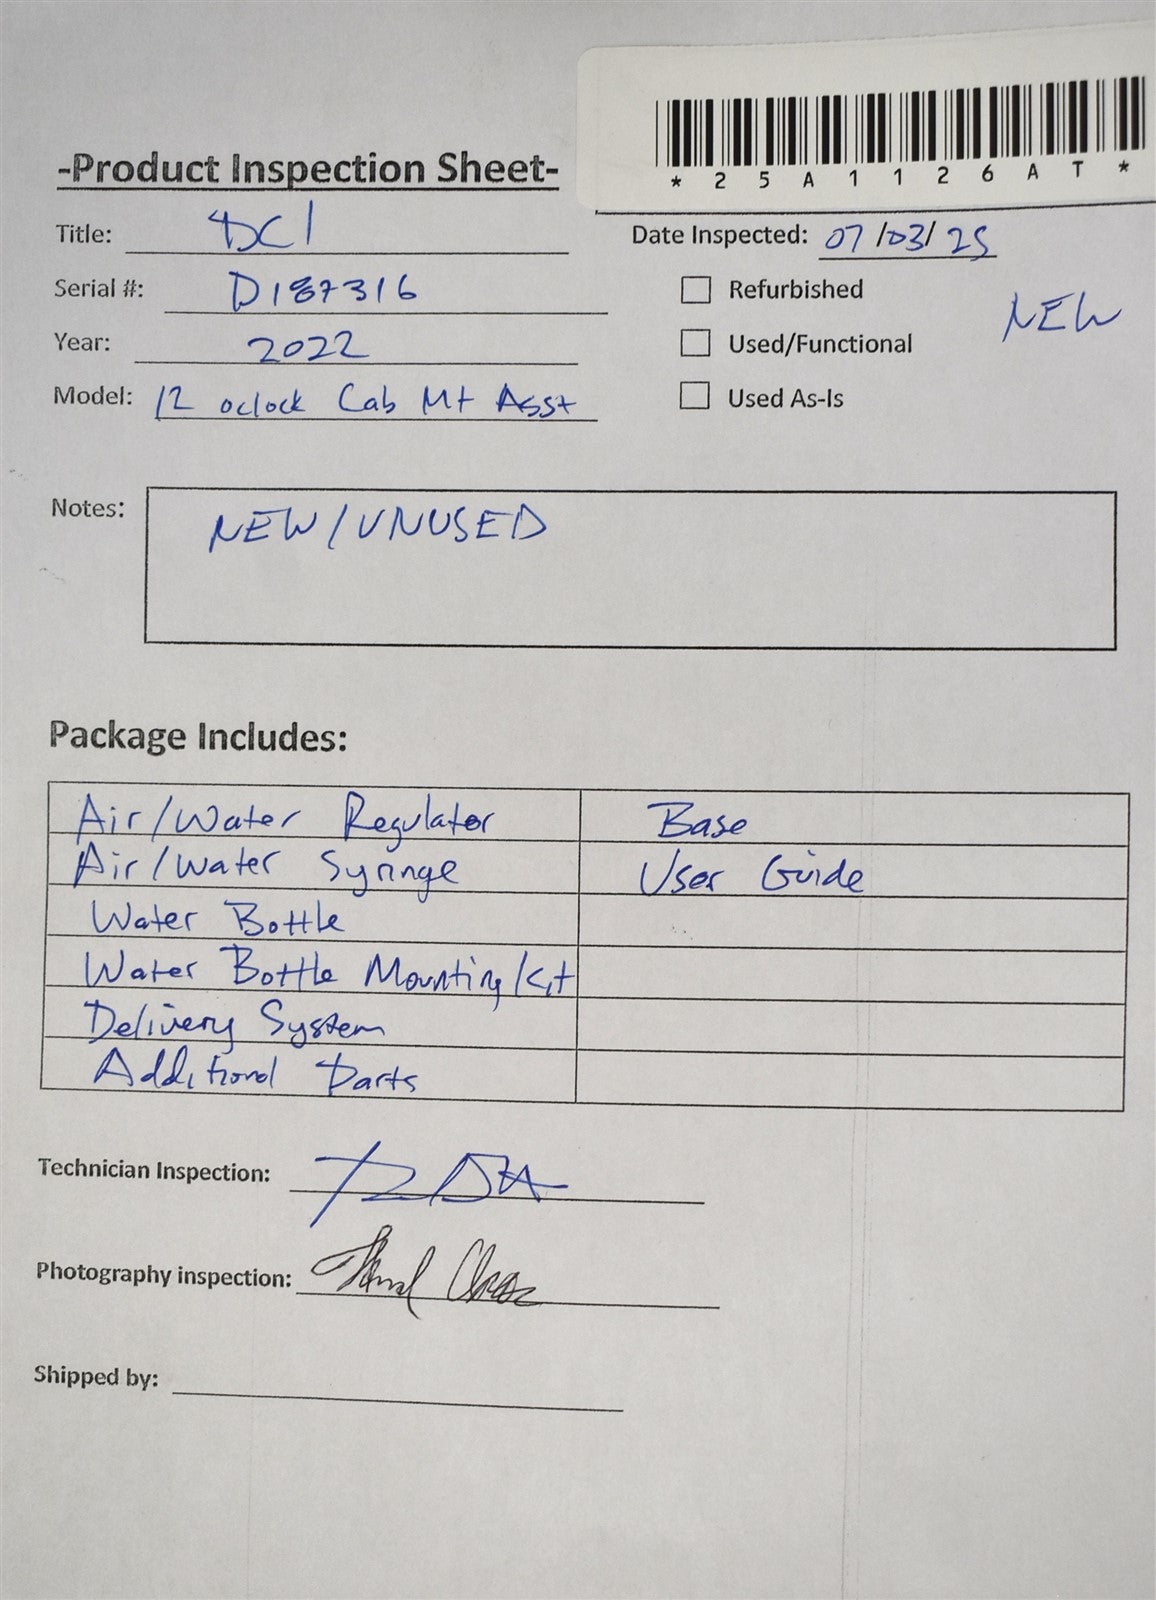 *25A1126AT*
-Product Inspection Sheet-
Title: DCI
Date Inspected: 07/03/25
Serial #: D187316
Refurbished
NEW
Year: 2022
Used/Functional
Model: 12 oclock Cab Mt Asst
Used As-Is
Notes: NEW/UNUSED
Package Includes:
Air/Water Regulator Base
Air/Water Syringe User Guide
Water Bottle
Water Bottle Mounting Kit
Delivery System
Additional Parts
Technician Inspection:
Photography inspection:
Shipped by: